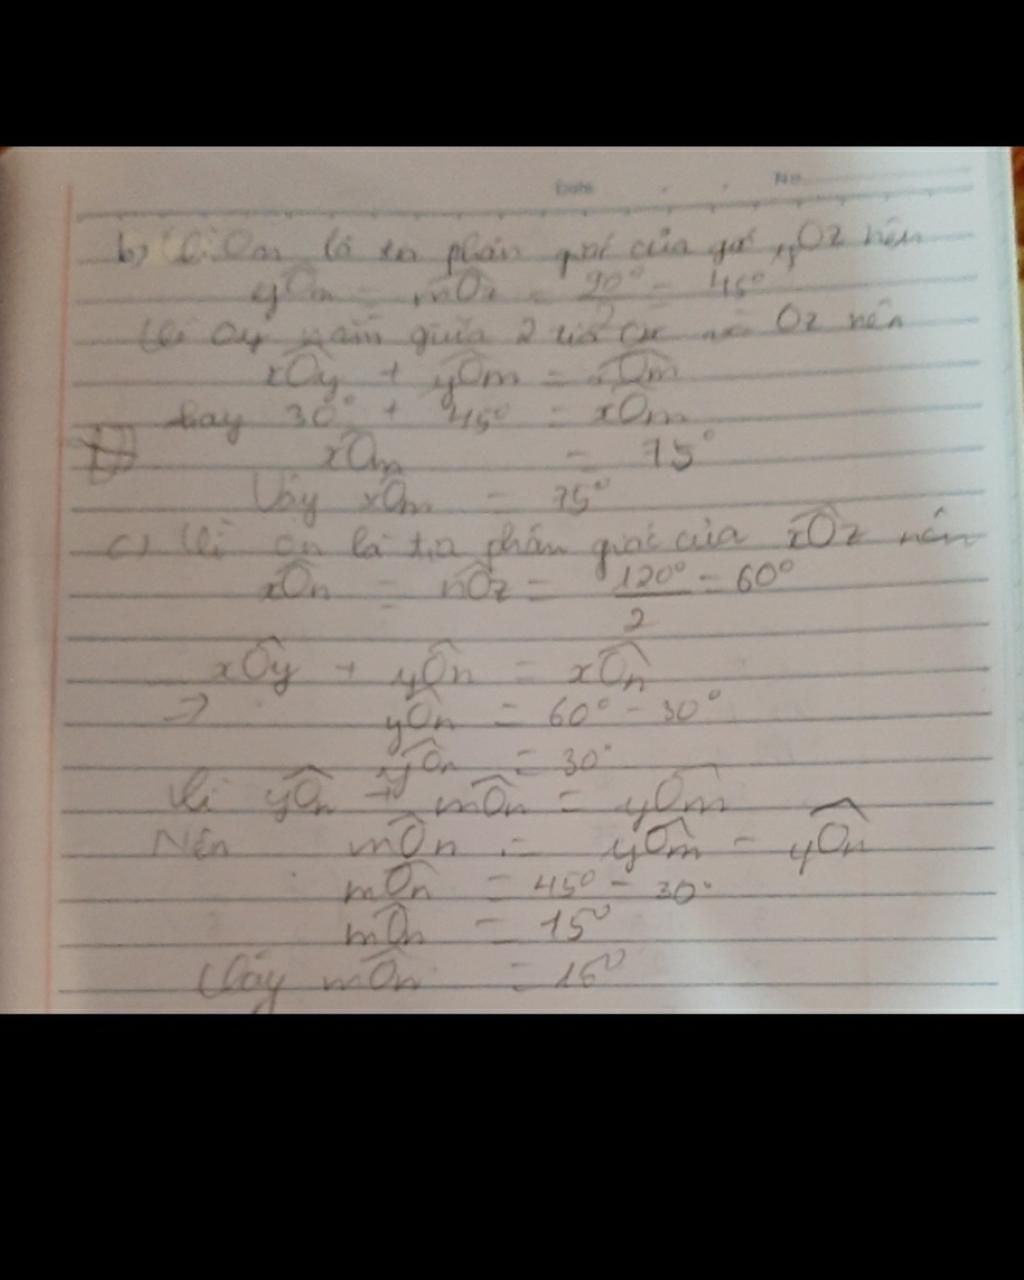 Date No
b) Vì Om là tia phân giác của góc yOz nên
yOm = mOz = 90°/2 = 45°
Vì Oy nằm giữa 2 tia Ox và Oz nên
xOy + yOm = xOm
hay 30° + 45° = xOm
xOm = 75°
Vậy xOm = 75°
c) Vì On là tia phân giác của xOz nên
xOn = nOz = 120°/2 = 60°
xOy + yOn = xOn
=> yOn = 60° - 30°
yOn = 30°
Vì yOn + mOn = yOm
Nên mOn = yOm - yOn
mOn = 45° - 30°
mOn = 15°
Vậy mOn = 15°